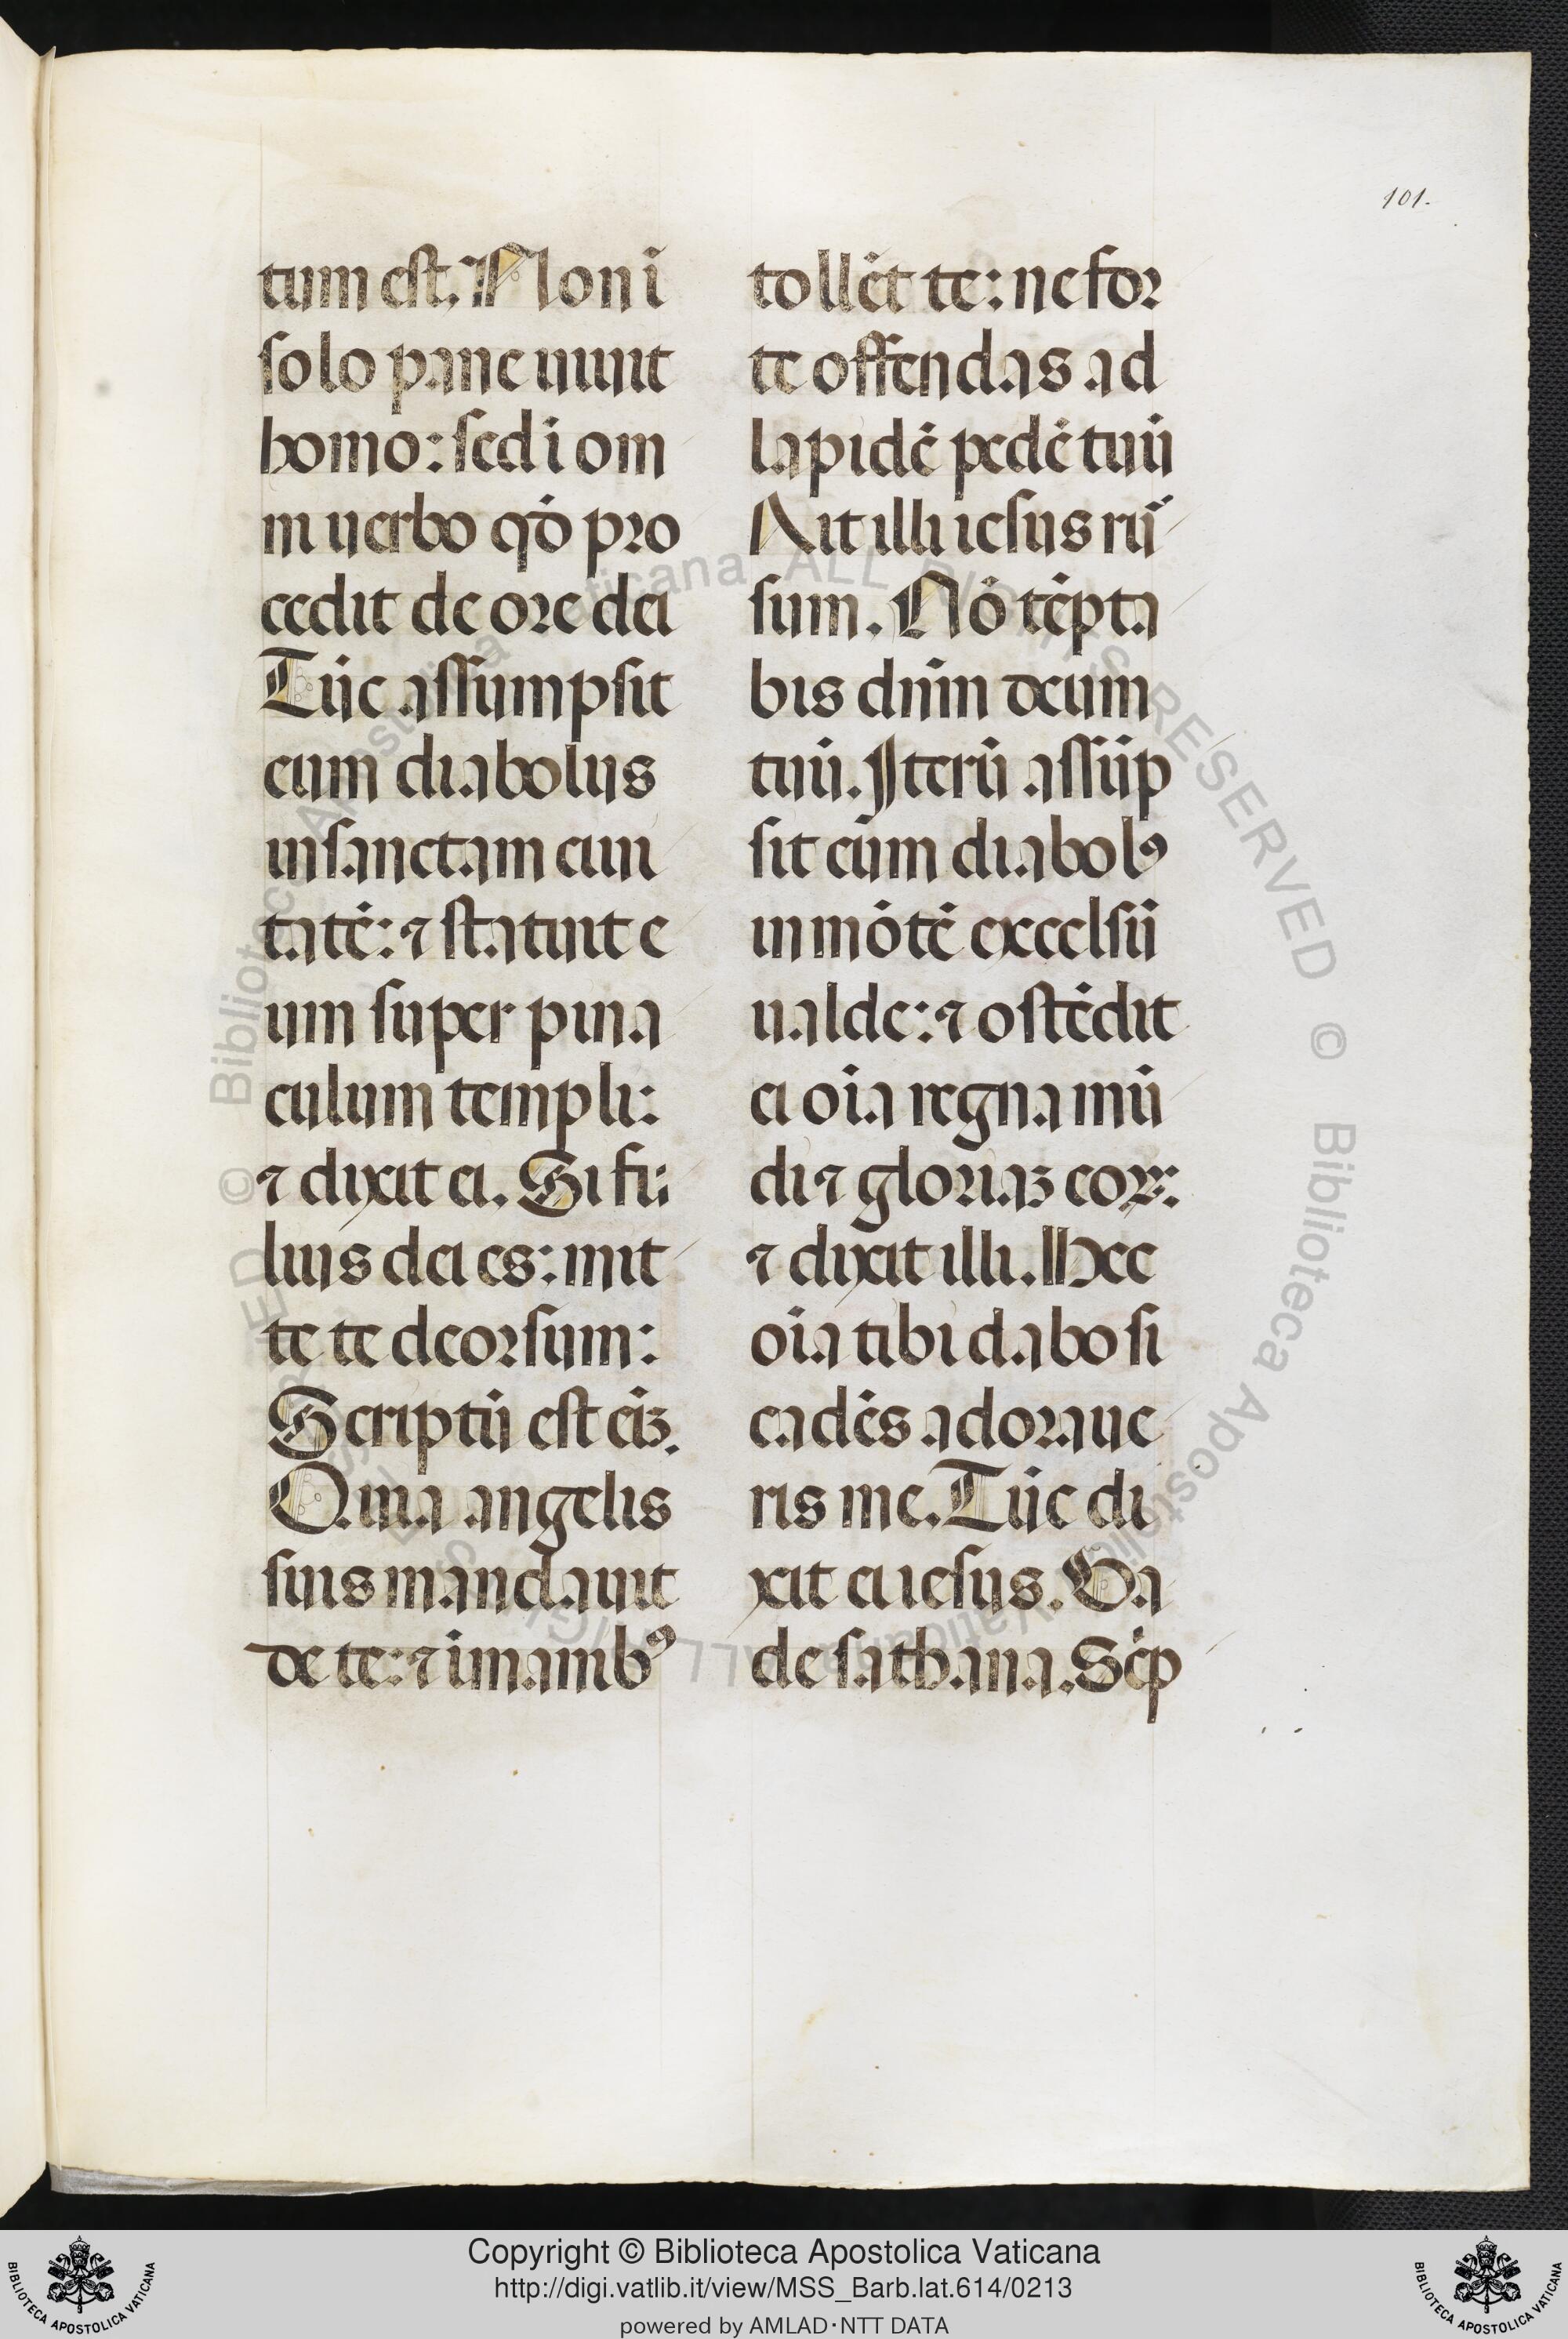 101.
tum est. Non ī
solo pane uiuit
homo: sed ī om
ni uerbo qđ pro
cedit de ore dei
Tūc assumpsit
eum diabolus
in sanctam ciui
tatē: ⁊ statuit e
um super pina
culum templi:
⁊ dixit ei. Si fi
lius dei es: mit
te te deorsum:
Scriptū est eīꝫ.
Quia angelis
suis mandauit
de te: ⁊ ī manibꝰ
tollēt te: ne for
te offendas ad
lapidē pedē tuū
Ait illi iesus rur̄
sum. Nō tēpta
bis dn̄m deum
tuū. Iterū assūp
sit eūm diabolꝰ
in mōtē excelsū
ualde: ⁊ ostēdit
ei oīa regna mū
di ⁊ gloriaꝫ eoꝝ:
⁊ dixit illi. Hec
oīa tibi dabo si
cadēs adoraue
ris me. Tūc di
xit ei iesus. Va
de sathana. Sc̄p
Copyright © Biblioteca Apostolica Vaticana
http://digi.vatlib.it/view/MSS_Barb.lat.614/0213
powered by AMLAD·NTT DATA
BIBLIOTECA APOSTOLICA VATICANA
BIBLIOTECA APOSTOLICA VATICANA